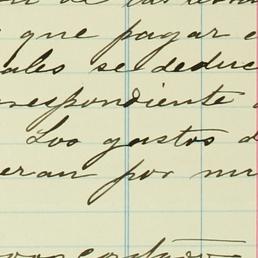 que pagar
ales se deduc
respondiente
Los gastos d
eran por mi